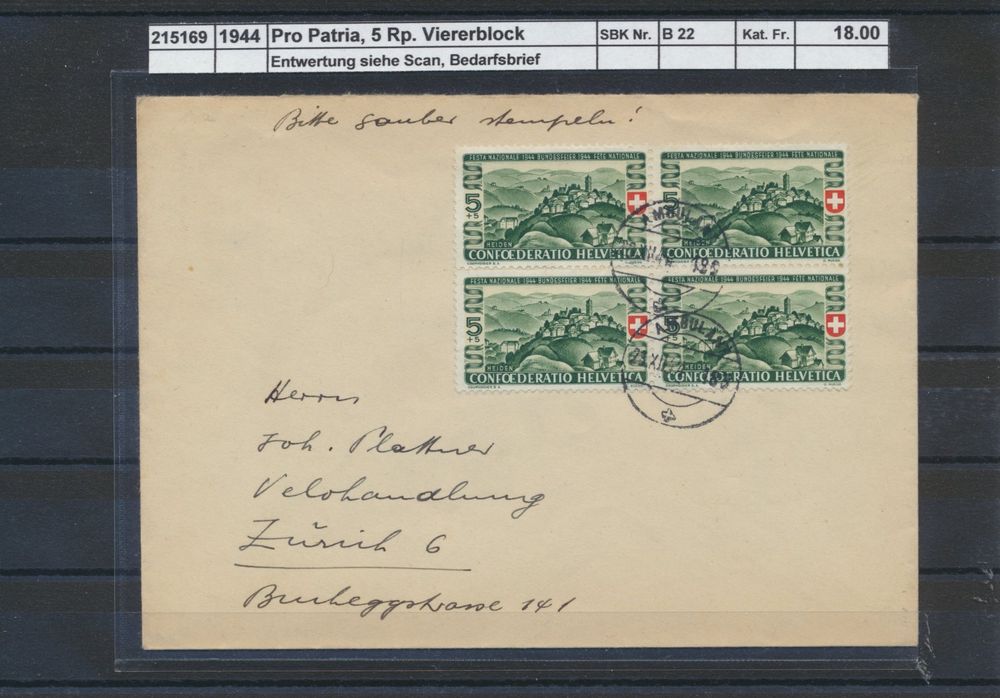 215169 1944 Pro Patria, 5 Rp. Viererblock SBK Nr. B 22 Kat. Fr. 18.00
Entwertung siehe Scan, Bedarfsbrief
Bitte sauber stempeln!
FESTA NAZIONALE 1944 BUNDESFEIER 1944 FÊTE NATIONALE
5
+5
HEIDEN
CONFŒDERATIO HELVETICA
FESTA NAZIONALE 1944 BUNDESFEIER 1944 FÊTE NATIONALE
5
HEIDEN
CONFŒDERATIO HELVETICA
FESTA NAZIONALE 1944 BUNDESFEIER 1944 FÊTE NATIONALE
5
+5
HEIDEN
CONFŒDERATIO HELVETICA
FESTA NAZIONALE 1944 BUNDESFEIER 1944 FÊTE NATIONALE
5
CONFŒDERATIO HELVETICA
Herrn
Joh. Plattner
Velohandlung
Zürich 6
Bucheggstrasse 141